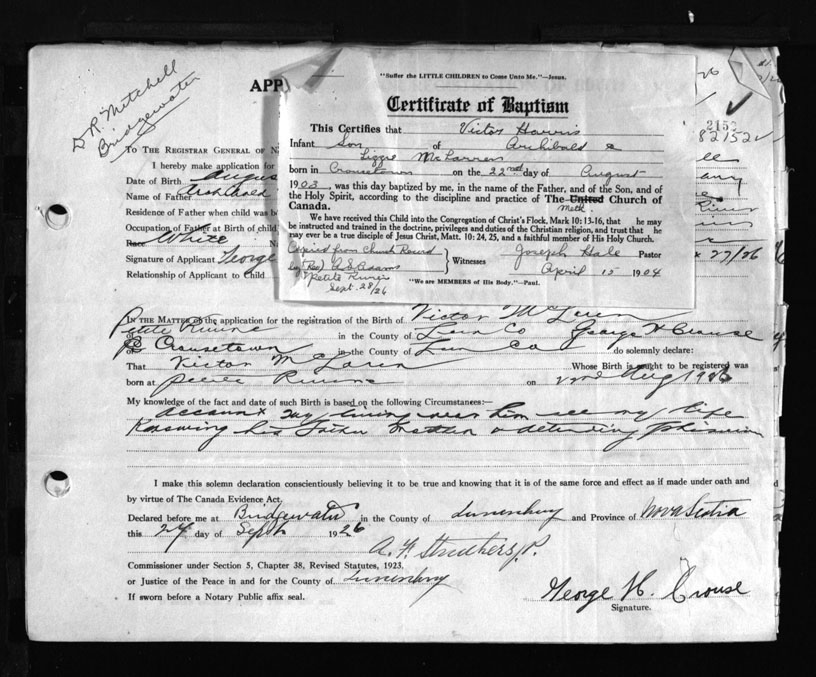 D R Mitchell
Bridgewater
APP
"Suffer the LITTLE CHILDREN to Come Unto Me."—Jesus.
Certificate of Baptism
This Certifies that Victor Harris
Infant Son of Archibald &
Lizzie McLarren
born in Crousetown on the 22nd day of August
1903, was this day baptized by me, in the name of the Father, and of the Son, and of
the Holy Spirit, according to the discipline and practice of The United Church of
Meth
Canada.
We have received this Child into the Congregation of Christ's Flock, Mark 10:13-16, that he may
be instructed and trained in the doctrine, privileges and duties of the Christian religion, and trust that he
may ever be a true disciple of Jesus Christ, Matt. 10: 24, 25, and a faithful member of His Holy Church.
Copied from Church Record
Joseph Hale Pastor
by Rev
Witnesses
April 15 1904
Petite Riviere
Sept. 28/26
"We are MEMBERS of His Body."—Paul.
2152
82152
27/26
TO THE REGISTRAR GENERAL OF N
I hereby make application for
Date of Birth Augus
Name of Father Archibald
Residence of Father when child was b
Occupation of Father at Birth of child
Race White
Signature of Applicant George
Relationship of Applicant to Child
IN THE MATTER of the application for the registration of the Birth of Victor McLaren
Petite Riviere in the County of Lun Co George H Crouse
of Crousetown in the County of Lun Co do solemnly declare:
That Victor McLaren Whose Birth is sought to be registered was
born at Petite Riviere on 22nd Aug
My knowledge of the fact and date of such Birth is based on the following Circumstances:—
account living near him my life
Knowing his Father Mother & attending
I make this solemn declaration conscientiously believing it to be true and knowing that it is of the same force and effect as if made under oath and
by virtue of The Canada Evidence Act.
Declared before me at Bridgewater in the County of Lunenburg and Province of Nova Scotia
this 27 day of Sept 1926
A. F. Struthers J.P.
Commissioner under Section 5, Chapter 38, Revised Statutes, 1923,
or Justice of the Peace in and for the County of Lunenburg
If sworn before a Notary Public affix seal.
George H. Crouse
Signature.